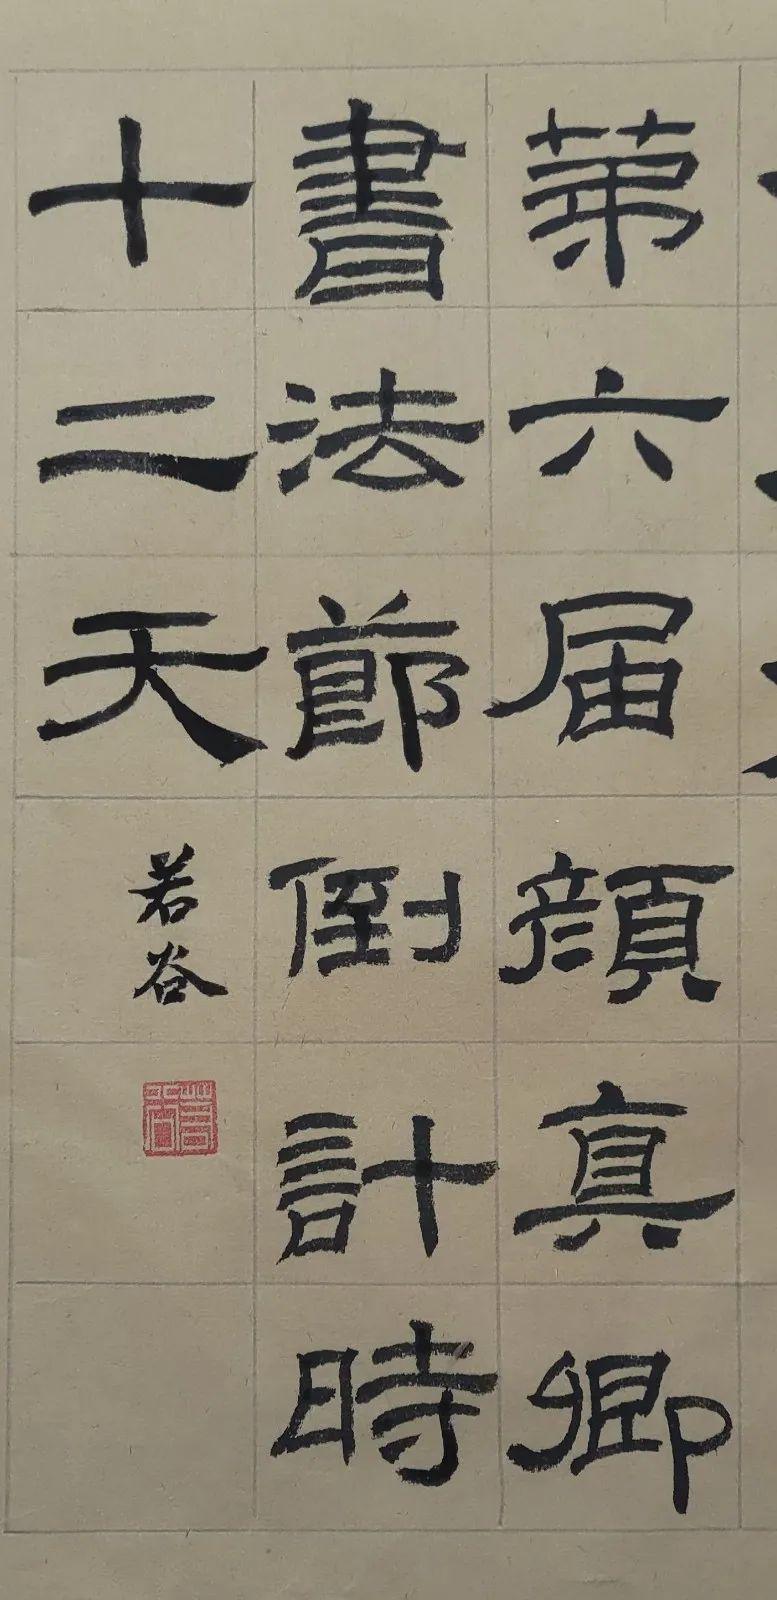 第六届顏真卿
書法節倒計時
十二天
若谷